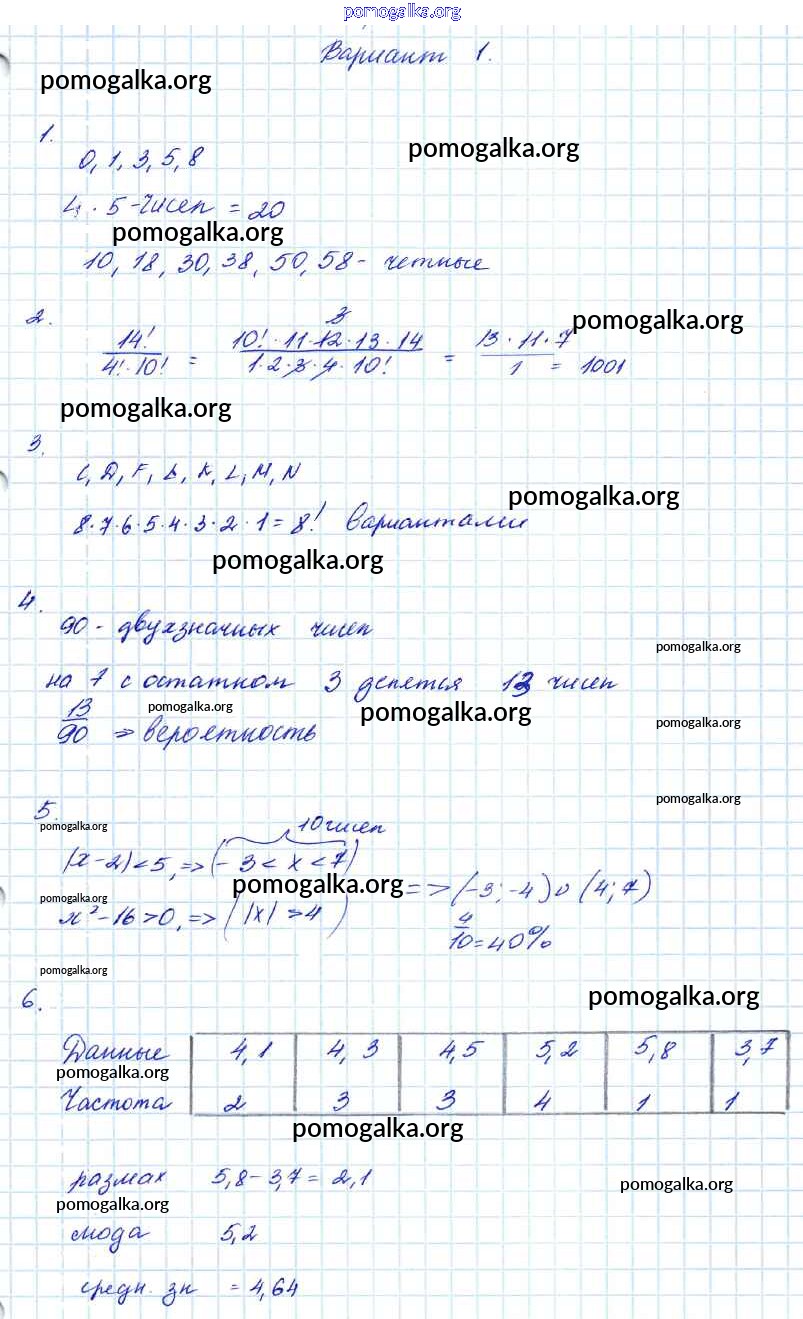 pomogalka.org
Вариант 1.
pomogalka.org
1.
pomogalka.org
0, 1, 3, 5, 8
4 · 5 - чисел = 20
pomogalka.org
10, 18, 30, 38, 50, 58 - четные
2.
pomogalka.org
14! / 4! · 10! = 10! · 11 · 12 · 13 · 14 / 1 · 2 · 3 · 4 · 10! = 13 · 11 · 7 / 1 = 1001
3
pomogalka.org
3.
C, D, F, K, L, M, N
pomogalka.org
8·7·6·5·4·3·2·1 = 8! вариантами
pomogalka.org
4.
90 - двухзначных чисел
pomogalka.org
на 7 с остатком 3 делятся 13 чисел
pomogalka.org
pomogalka.org
pomogalka.org
13 / 90 => вероятность
pomogalka.org
5.
pomogalka.org
10 чисел
|x-2|<5, => (-3 < x < 7)
pomogalka.org
=> (-3; -4) ∪ (4; 7)
pomogalka.org
x²-16>0, => (|x| >4)
4 / 10 = 40%
pomogalka.org
6.
pomogalka.org
Данные 4,1 4,3 4,5 5,2 5,8 3,7
pomogalka.org
Частота 2 3 3 4 1 1
pomogalka.org
размах 5,8 - 3,7 = 2,1
pomogalka.org
pomogalka.org
мода 5,2
средн. зн = 4,64